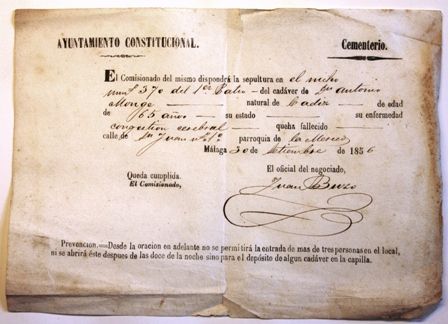 AYUNTAMIENTO CONSTITUCIONAL. Cementerio.
El Comisionado del mismo dispondrá la sepultura en el nicho
num.º 370 del 1er Patio del cadáver de Dn Antonio
Monge natural de Cadiz de edad
de 65 años su estado su enfermedad
congestion cerebral queha fallecido
calle de Sn Juan nº parroquia de la Merced
Málaga 30 de Setiembre de 1856
Queda cumplida. El oficial del negociado,
El Comisionado,
Juan
Prevencion.—Desde la oracion en adelante no se permitirá la entrada de mas de tres personas en el local,
ni se abrirá éste despues de las doce de la noche sino para el depósito de algun cadáver en la capilla.